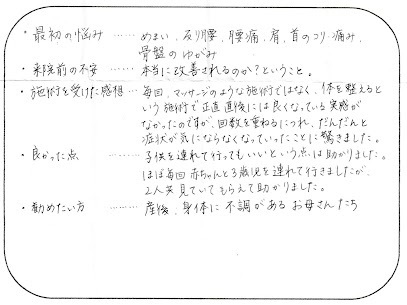 ・最初の悩み …… めまい、反り腰、腰痛、肩、首のコリ・痛み、
骨盤のゆがみ
・来院前の不安 …… 本当に改善されるのか？ということ。
・施術を受けた感想 … 毎回、マッサージのような施術ではなく、体を整えると
いう施術で正直直後には良くなっている実感が
なかったのですが、回数を重ねるにつれ、だんだんと
症状が気にならなくなっていったことに驚きました。
・良かった点 …… 子供を連れて行ってもいいという点は助かりました。
ほぼ毎回赤ちゃんと3歳児を連れて行きましたが、
2人共見ていてもらえて助かりました。
・勧めたい方 …… 産後、身体に不調があるお母さんたち